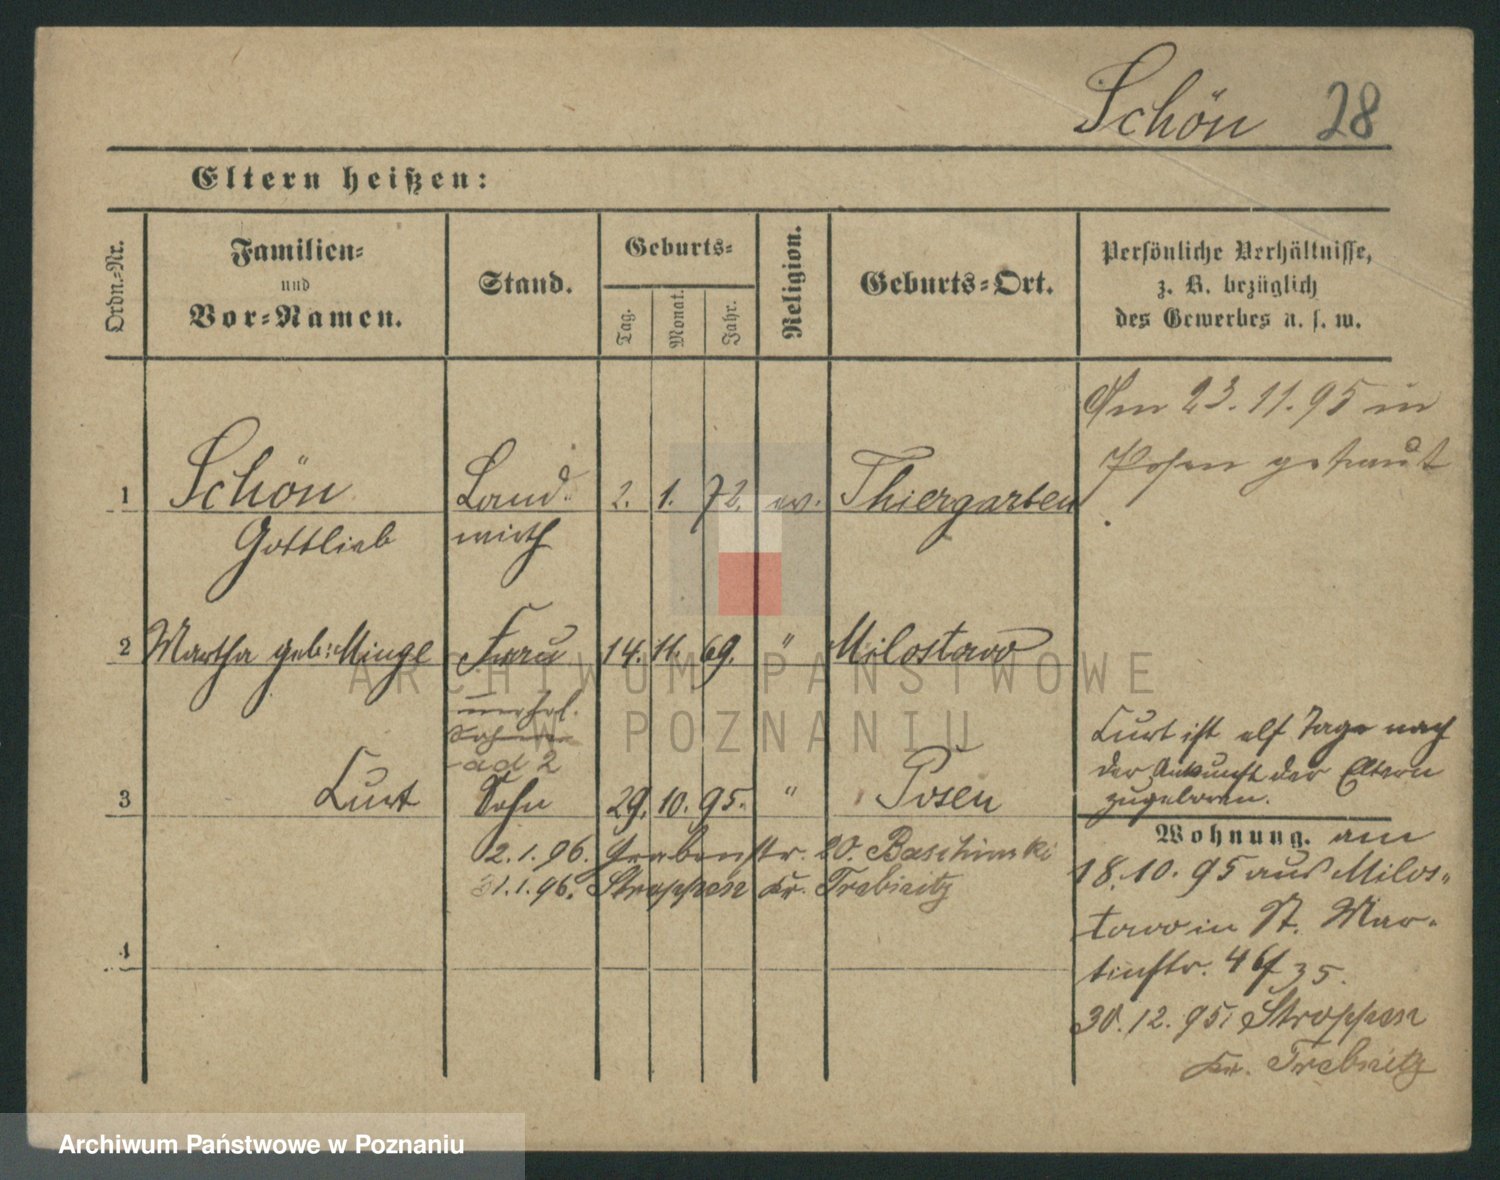 Schön 28
Eltern heißen:
Ordn.-Nr.
Familien-
und
Vor-Namen.
Stand.
Geburts-
Tag.
Monat.
Jahr.
Religion.
Geburts-Ort.
Persönliche Verhältnisse,
z. B. bezüglich
des Gewerbes u. s. w.
Am 23.11.95 in
Posen getraut
1 Schön Land- 2. 1. 72. ev. Thiergarten
Gottlieb wirth
2 Martha geb: Minge Frau 14. 11. 69. " Milostowo
unehel.
ad 2
3 Curt Sohn 29. 10. 95. " Posen
Curt ist elf Tage nach
der Ankunft der Eltern
zugeboren.
2.1.96. Grabenstr. 20. Baschinski
31.1.96. Stroppen Kr. Trebnitz
4
Wohnung. am
18.10.95 aus Milos-
towo in St. Mar-
tinstr. 35.
30.12.95. Stroppen
Kr. Trebnitz
ARCHIWUM PAŃSTWOWE
W POZNANIU
Archiwum Państwowe w Poznaniu